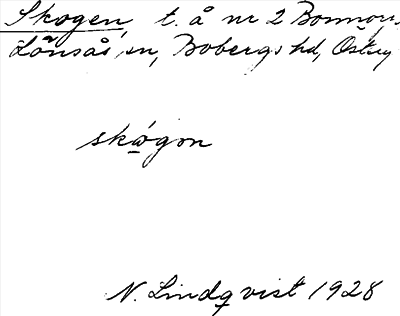 Skogen, t. å nr 2 Bonnorp,
Lönsås sn, Bobergs hd, Östsg
skógon
N. Lindqvist 1928